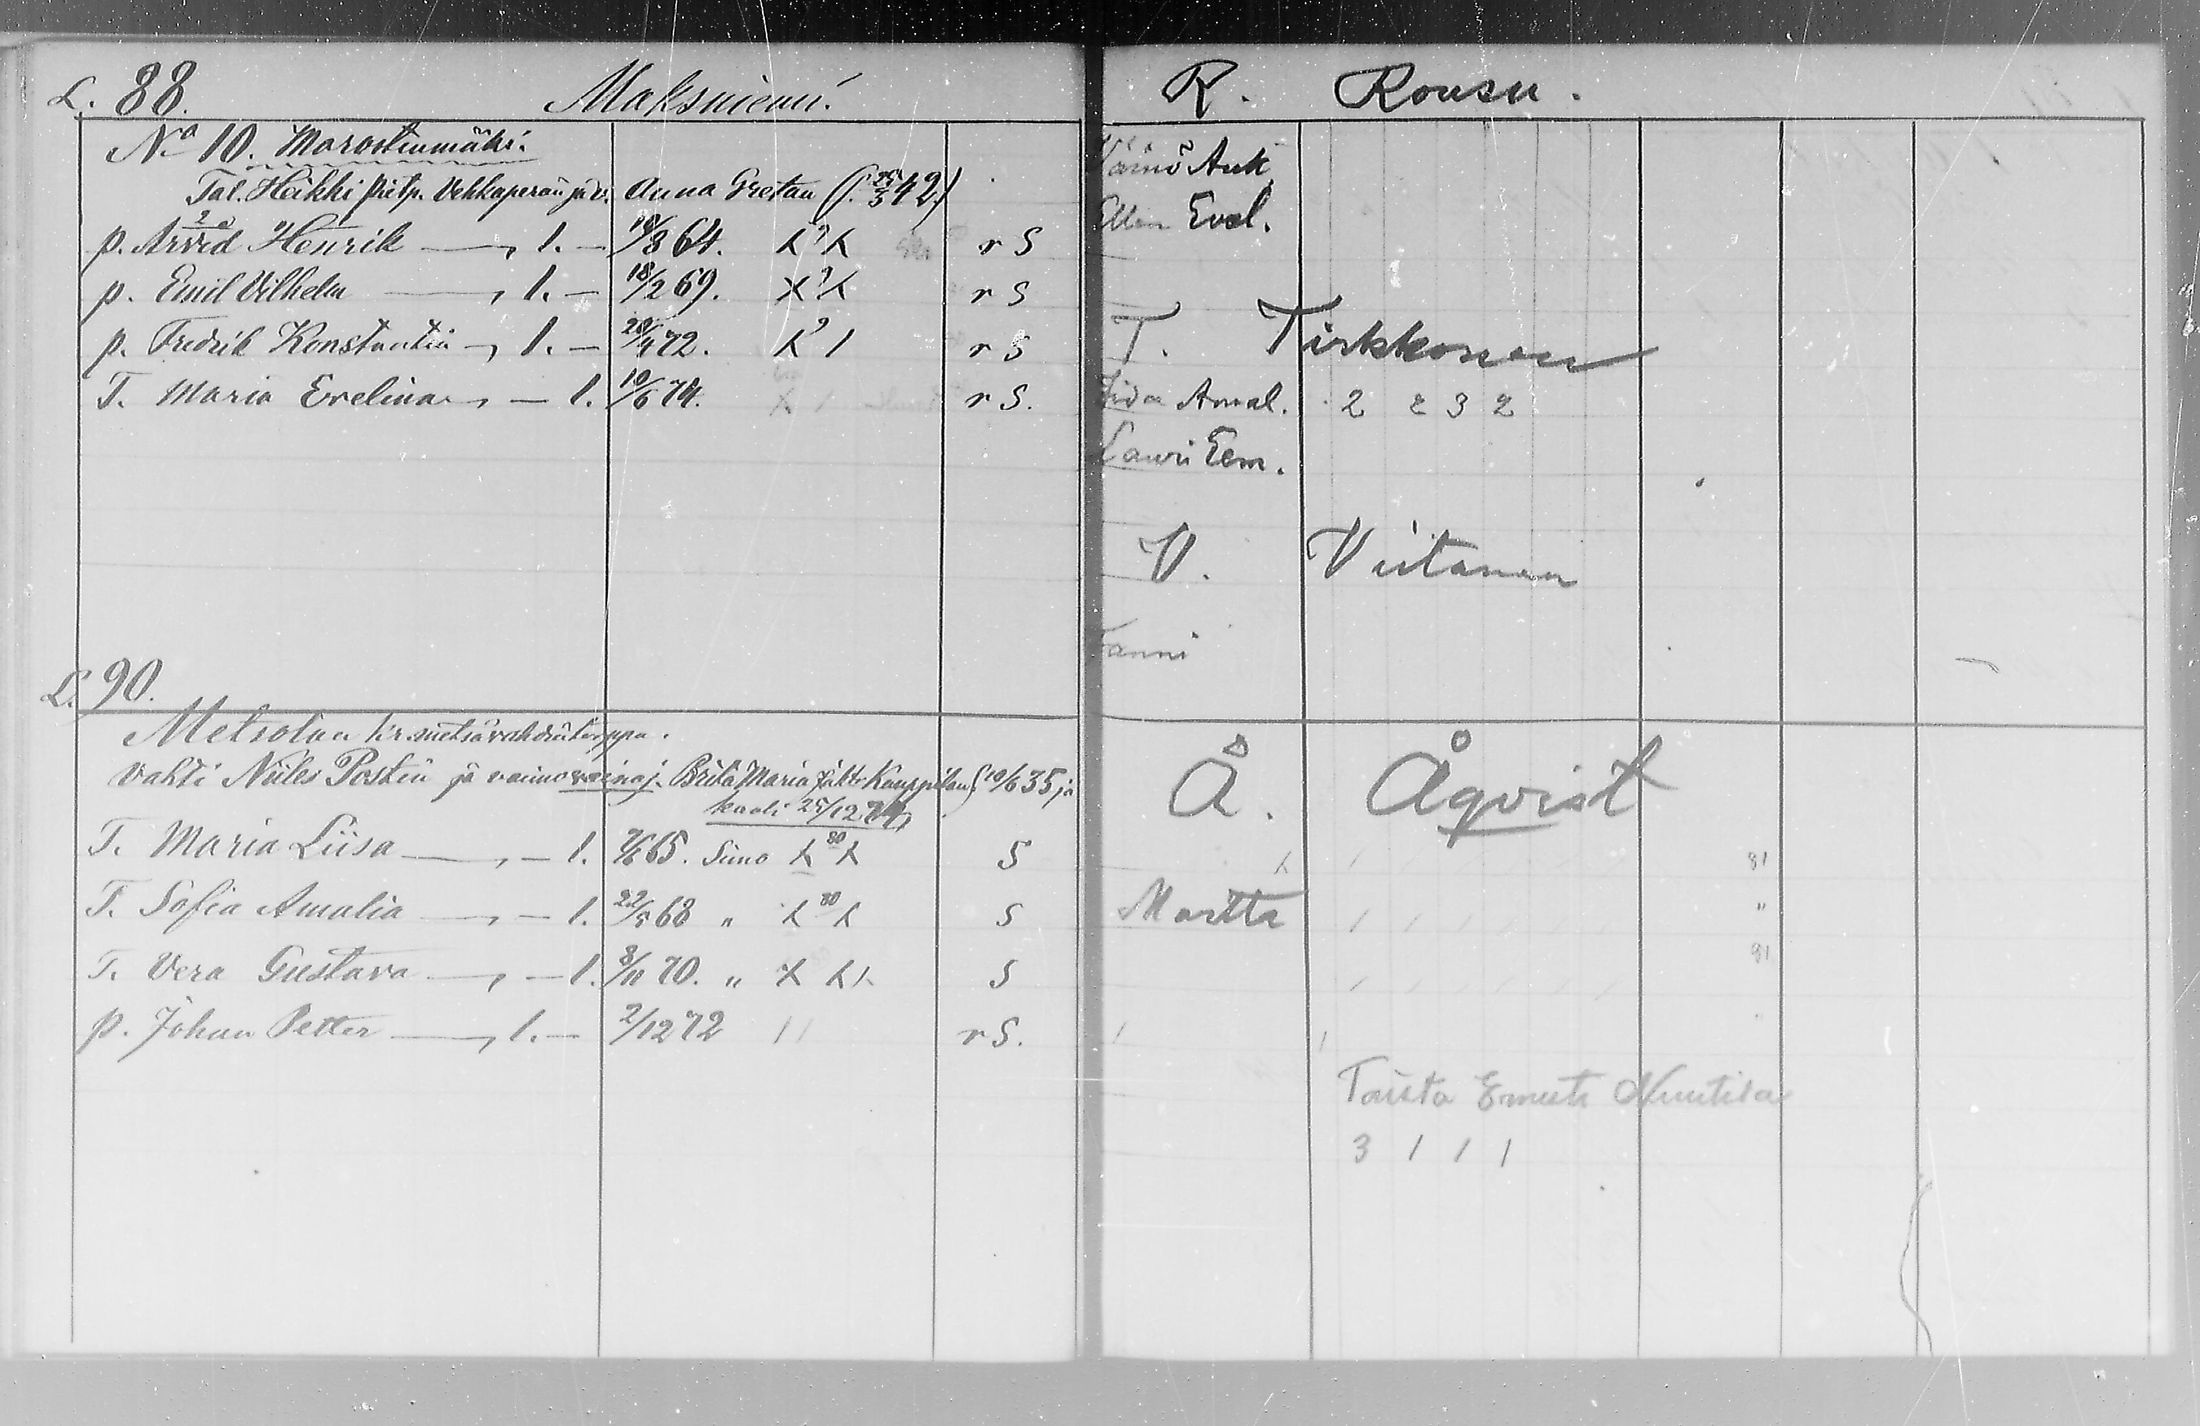 L. 88. Maksniemi.
No 10. Marostenmäki.
Tal. Heikki Pietp. Vehkaperän ja v. Anna Gretan (f. 25/3 42.)
p. Arvid Henrik —, 1. — 19/8 64. r S
p. Emil Vilhelm —, 1. — 18/2 69. r S
p. Fredrik Konstantin —, 1. — 28/4 72. r S
T. Maria Evelina —, — 1. 10/6 74. r S.
L. 90.
Metsolan kr. metsävahdintorppa.
Vahti Niiles Postin ja vaimovainaj. Brita Maria Jaktr Kauppilan (10/6 35 ja
kuoli 25/12 74)
T. Maria Liisa —, — 1. 7/6 65. Simo 80 S
T. Sofia Amalia —, — 1. 22/8 68 " 80 S
T. Vera Gustava —, — 1. 8/11 70. " S
p. Johan Petter —, 1. — 2/12 72 r S.
R. Rousu.
Väinö Ant.
Ellen Evel.
T. Tirkkonen
Amal. 2 2 3 2
Lauri Eem.
V. Viitanen
Fanni
Å. Åqvist
81
Martta "
81
Taista Ernesti Nuutila
3 1 1 1